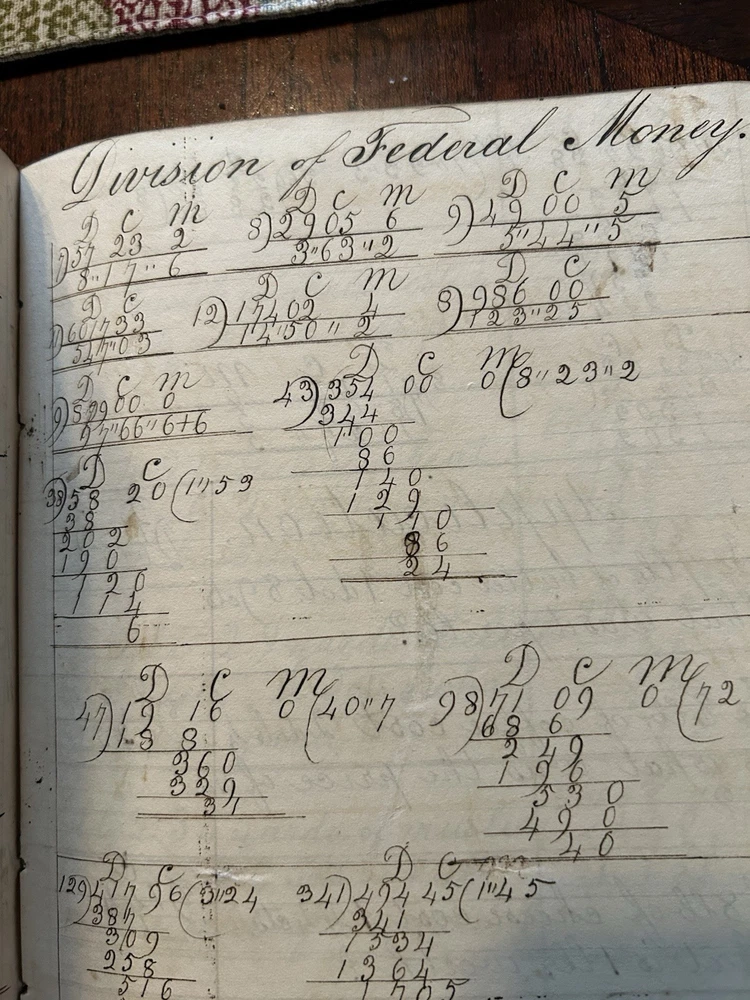 Division of Federal Money.
D C M
7)57 23 2
8"17"6
D C M
8)2905 6
3"63"2
D C M
9)49 00 5
5"44"5
D C
601733
547"03
D C M
12)17402 4
14"50"2
D C
8)986 00
123"25
D C M
9)87900 0
97"66"6+6
D C M
43)354 00 0(8"23"2
344
100
86
140
129
110
86
24
D C
38)58 20(1"53
38
202
190
120
114
6
D C M
47)19 16 0(40"7
18 8
360
329
31
D C M
98)71 09 0(72
68 6
249
196
530
490
40
D C
129)417 96(3"24
387
309
258
516
D C
341)494 45(1"45
341
1534
1364
1705